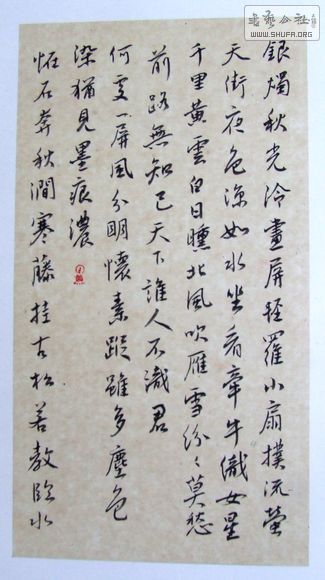 書藝公社
WWW.SHUFA.ORG
銀燭秋光冷畫屏輕羅小扇撲流螢
天街夜色涼如水坐看牽牛織女星
千里黃雲白日曛北風吹雁雪紛々莫愁
前路無知己天下誰人不識君
何處一屏風分明懷素蹤雖多塵色
染猶見墨痕濃
怪石奔秋澗寒藤挂古松若教臨水